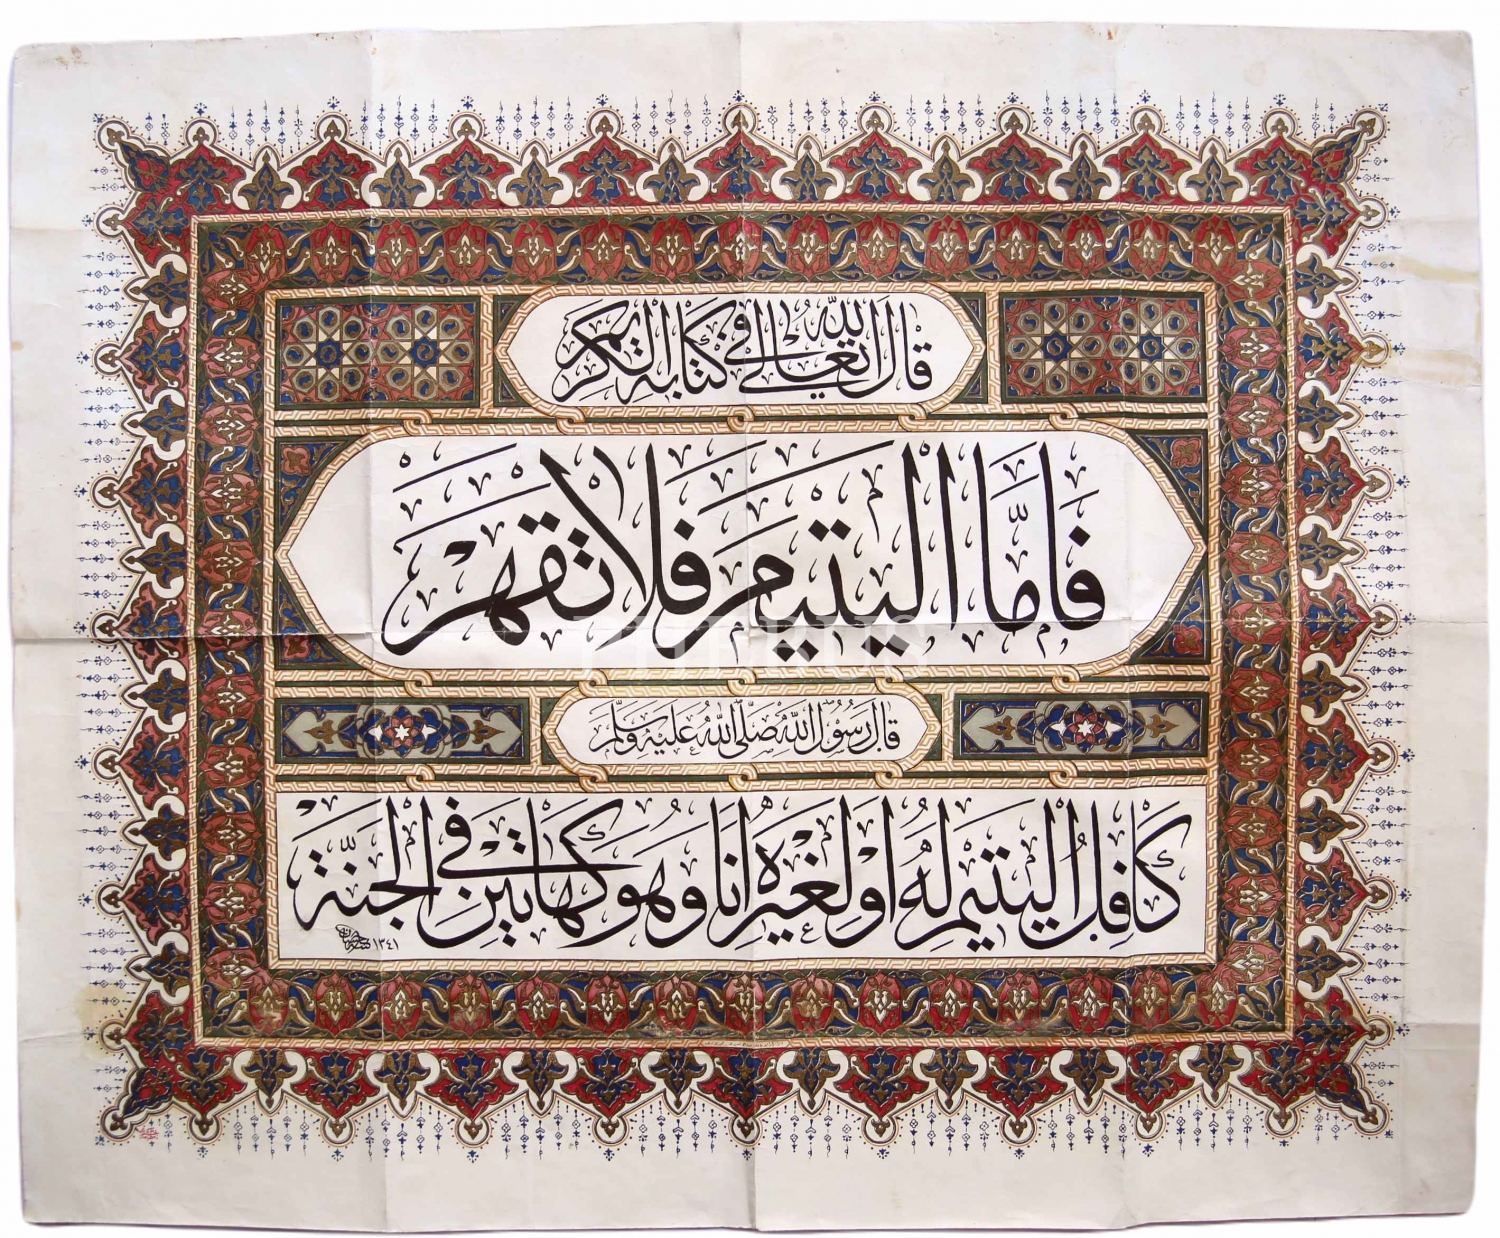 قال الله تعالى في كتابه الكريم
فَاَمَّا الْيَتِيمَ فَلَا تَقْهَرْ
قال رسول الله صلى الله عليه وسلم
كَافِلُ الْيَتِيمِ لَهُ اَوْ لِغَيْرِهِ اَنَا وَهُوَ كَهَاتَيْنِ فِي الْجَنَّةِ
١٣٤١